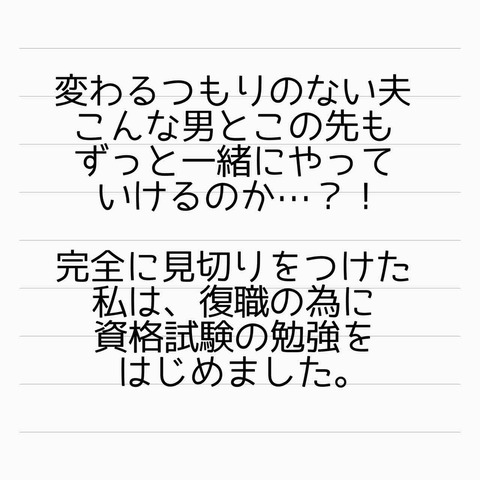 変わるつもりのない夫
こんな男とこの先も
ずっと一緒にやって
いけるのか…？！
完全に見切りをつけた
私は、復職の為に
資格試験の勉強を
はじめました。